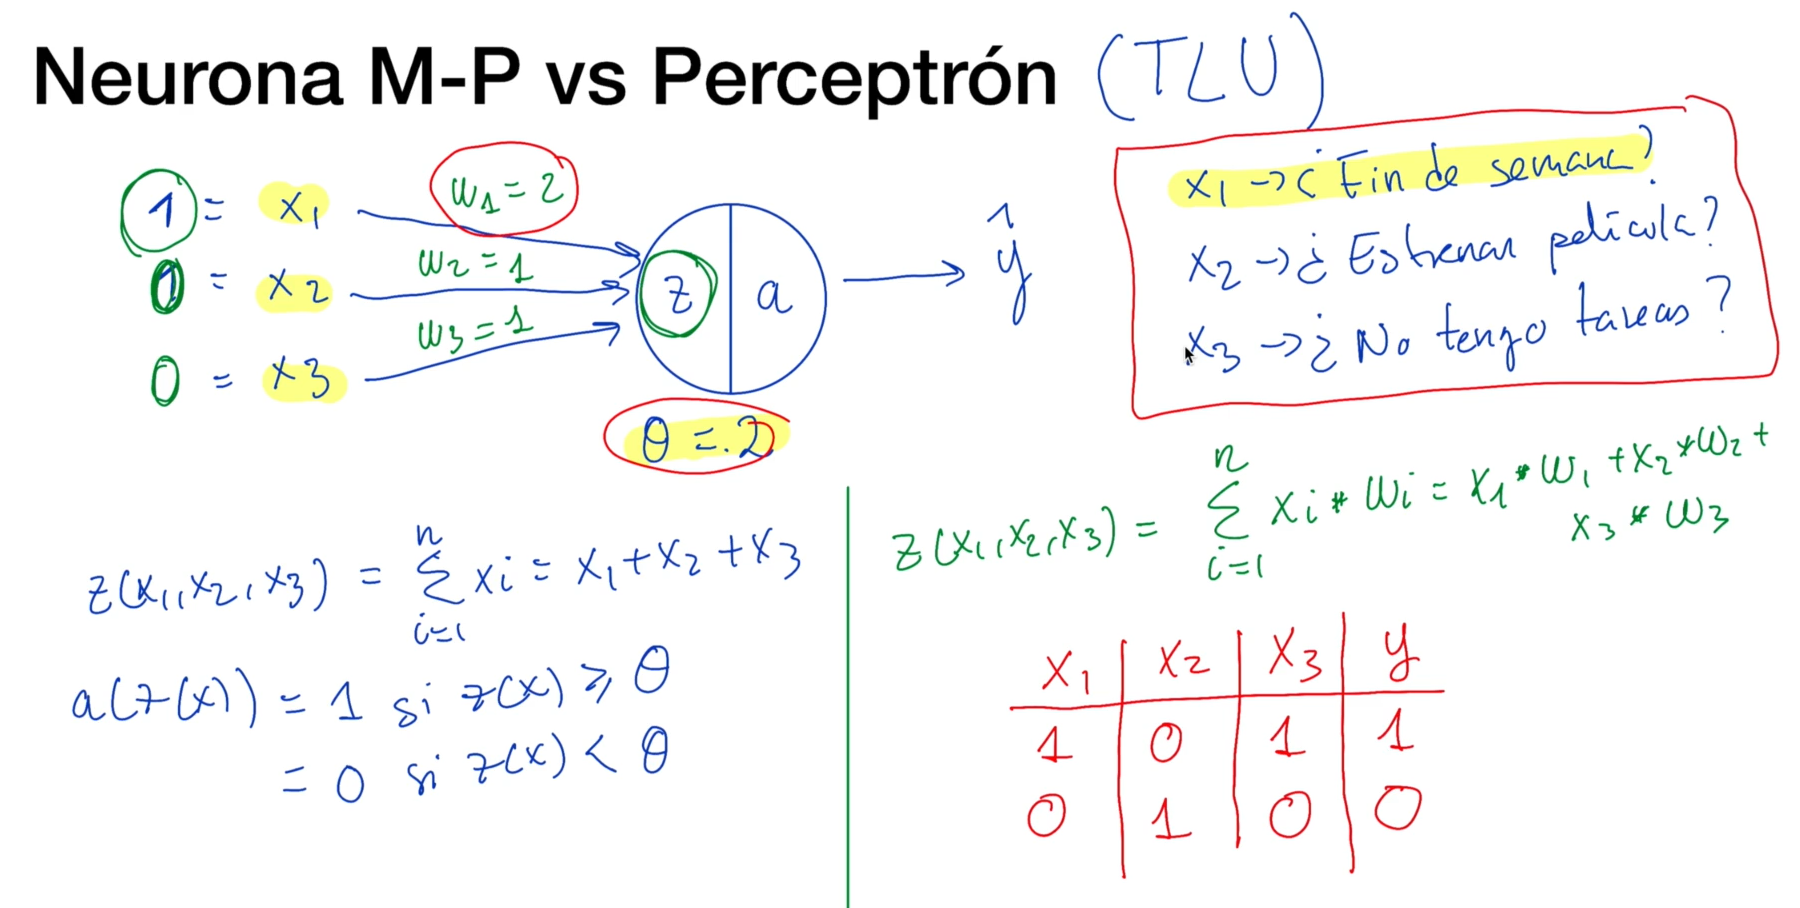 Neurona M-P vs Perceptrón (TLU)
1 = x1
w1 = 2
0 = x2
w2 = 1
0 = x3
w3 = 1
z a
ŷ
θ = 2
x1 → ¿Fin de semana?
x2 → ¿Estrenan película?
x3 → ¿No tengo tareas?
z(x1, x2, x3) = Σ xi = x1 + x2 + x3
n
i=1
a(z(x)) = 1 si z(x) ≥ θ
= 0 si z(x) < θ
z(x1, x2, x3) = Σ xi * wi = x1 * w1 + x2 * w2 +
n
i=1
x3 * w3
x1 x2 x3 y
1 0 1 1
0 1 0 0